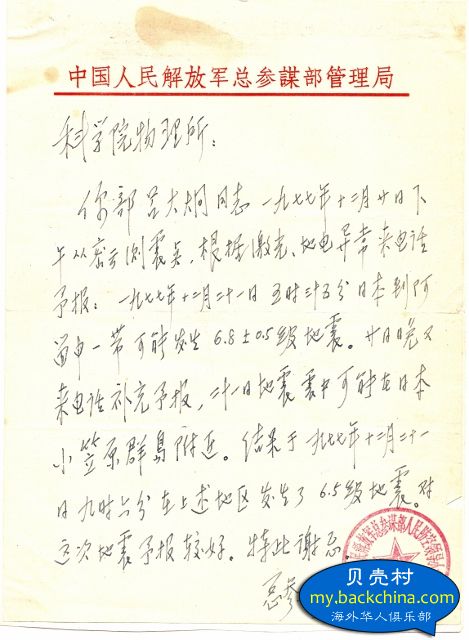 中国人民解放军总参謀部管理局
科学院物理所：
你部吕大炯同志一九七七年十二月廿日下
午从密云测震点，根据激光、地电异常来电话
予报：一九七七年十二月二十一日五时三十五分日本到阿
留申一带可能发生6.8±0.5级地震。廿日晚又
来电话补充予报，二十一日地震震中可能在日本
小笠原群岛附近。结果于一九七七年十二月二十一
日九时六分在上述地区发生了6.5级地震。对
这次地震予报较好。特此谢意
总参
贝壳村
my.backchina.com
海外华人俱乐部